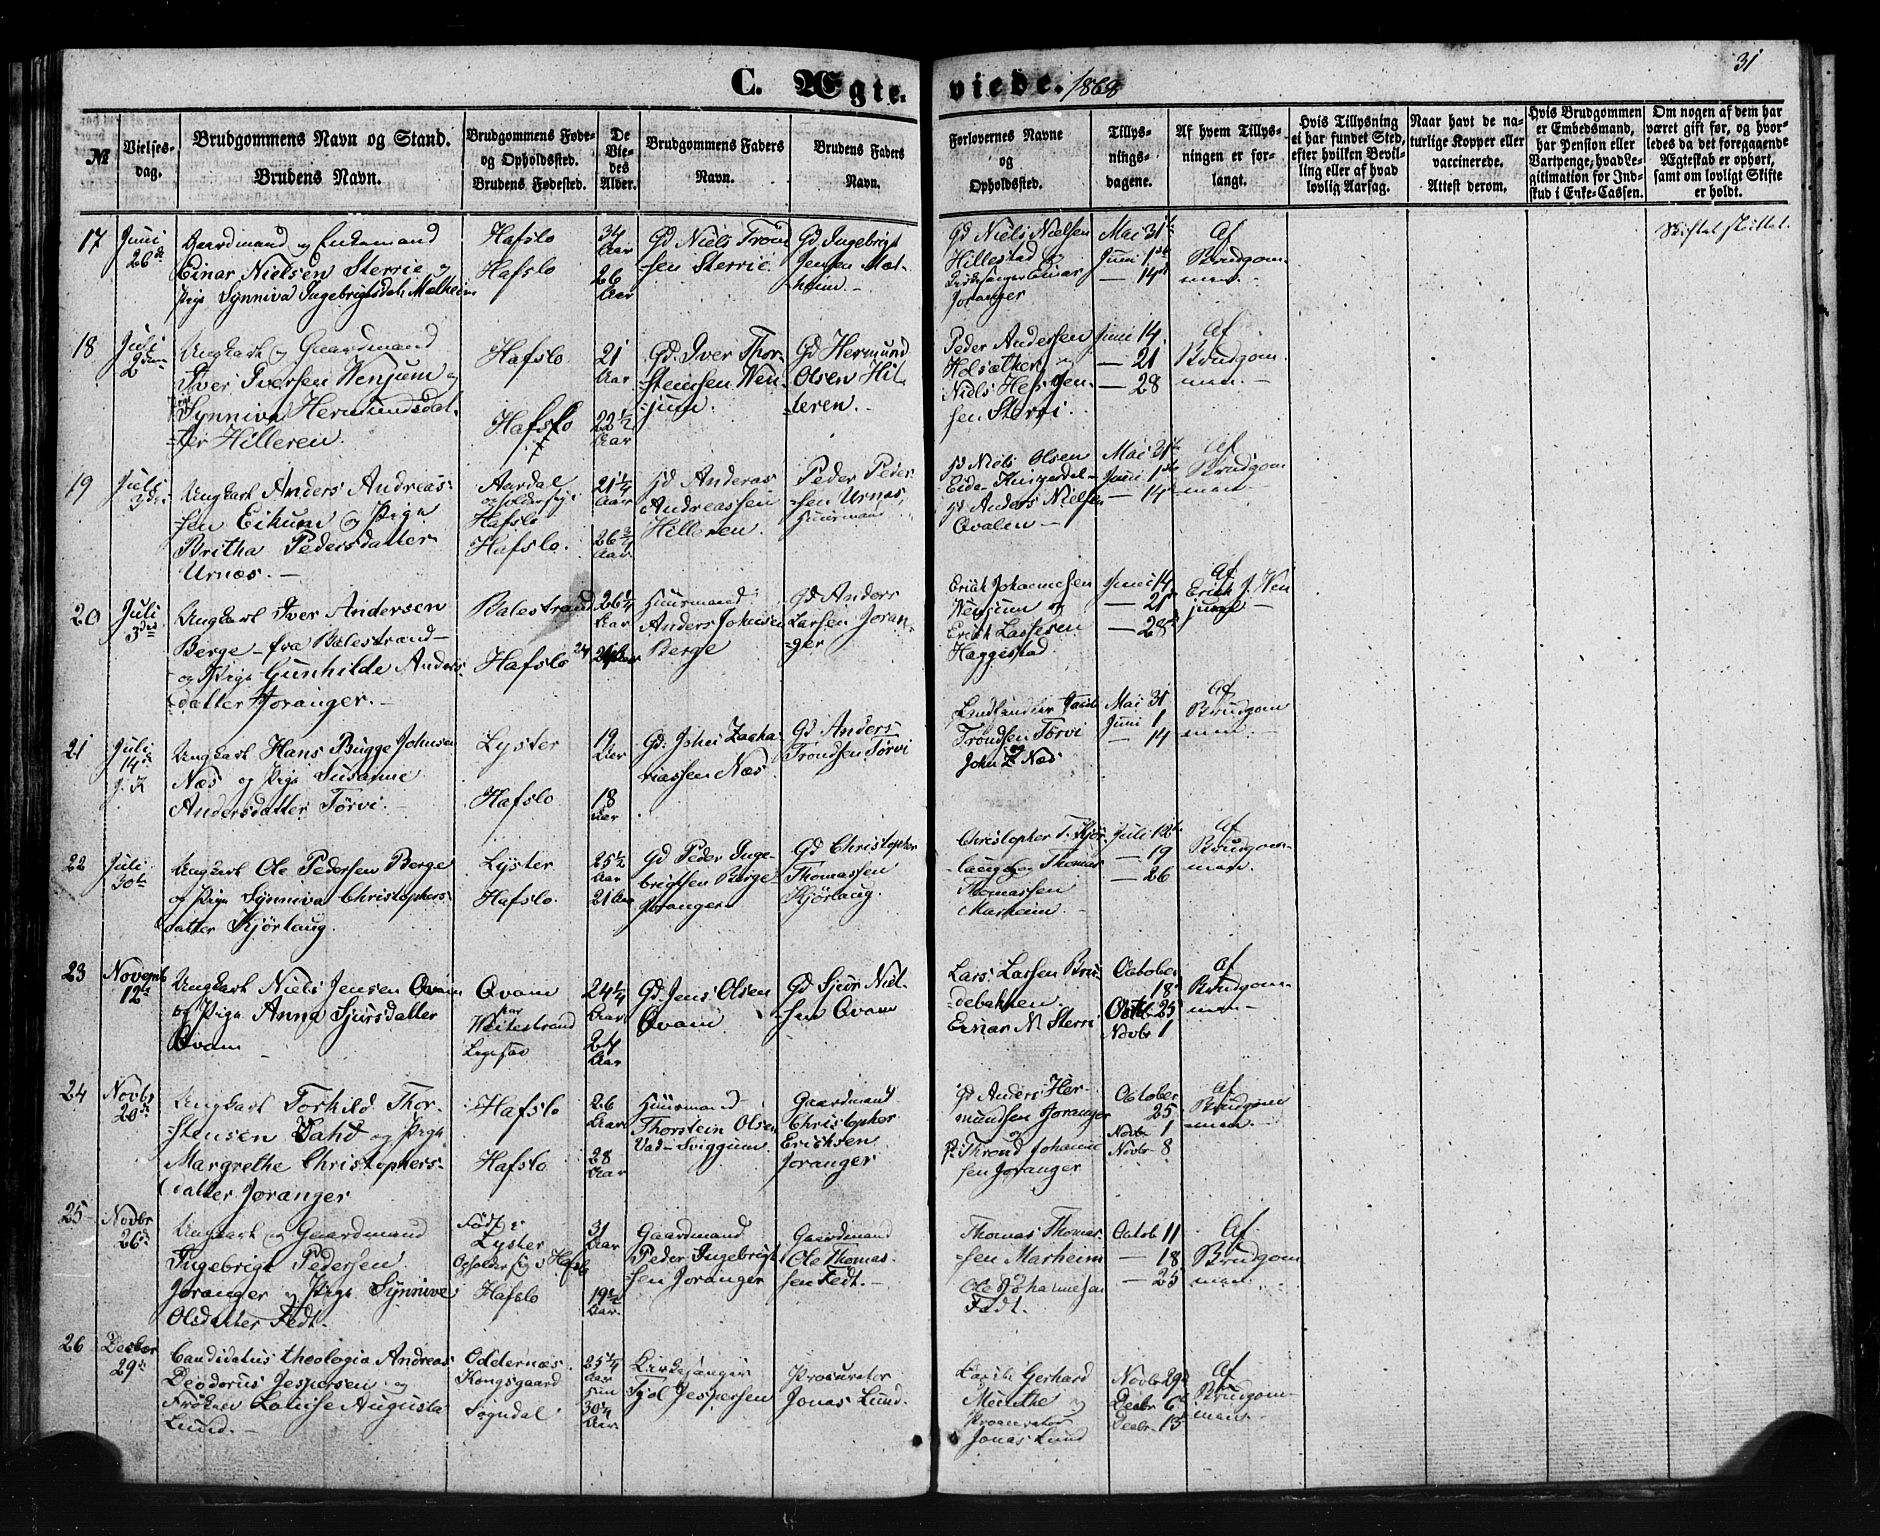 31
C. Ægte-viede. 1868
№
Vielses-
dag.
Brudgommens Navn og Stand.
Brudens Navn.
Brudgommens Føde-
og Opholdssted.
Brudens Fødested.
De
Vie-
des
Alder.
Brudgommens Faders
Navn.
Brudens Faders
Navn.
Forlovernes Navne
og
Opholdssted.
Tillys-
nings-
dagene.
Af hvem Tillys-
ningen er for-
langt.
Hvis Tillysning
ei har fundet Sted,
efter hvilken Bevil-
ling eller af hvad
lovlig Aarsag.
Naar havt de na-
turlige Kopper eller
vaccinerede.
Attest derom.
Hvis Brudgommen
er Embedsmand,
har Pension eller
Vartpenge; hvad Le-
gitimation for Ind-
skud i Enke-Cassen.
Om nogen af dem har
været gift før, og hvor-
ledes da det foregaaende
Ægteskab er ophørt,
samt om lovligt Skifte
er holdt.
17
Juni
26de
Gaardmand og Enkemand
Einar Nielsen Sterrie og
Pige Synniva Ingebrigtsdatr Malheim
Hafslo
Hafslo
34
Aar
26
Aar
Gd Niels Tron
sen Sterrie.
Gd Ingebrigt
Jensen Mal-
heim.-
Gd Niels Nielsen
Hillestad og
Kirkesanger Einar
Joranger
Mai 31te
Juni 1ste
— 14de
Af
Brudgom-
men.
Skiftet skiftet.
18
Juli
2den
Ungkarl og Gaardmand
Iver Iversen Venjum og
Pige Synniva Hermundsdat-
ter Hilleren.
Hafslo
Hafslo
21
Aar
22½
Aar
Gd. Iver Thor-
steinsen Ven-
jum.
Gd Hermund
Olsen Hil-
leren.-
Peder Andersen
Helsæther og
Niels Hessjen-
sen Sterri.
Juni 14.
— 21
— 28
Af
Brudgom-
men.-
19
Juli
3die
Ungkarl Anders Andreas-
sen Eikum og Pige
Britha Pedersdatter
Urnæs.-
Aardal
opholder sig i
Hafslo
Hafslo.
21¼
Aar
26¾
Aar
Gd Andreas
Andreassen
Hilleren.
Peder Peder-
sen Urnæs,
Huusmand
Gd Niels Olsen
Eide
Gd Anders Nielsen
Qvalen-
Mai 31te
Juni 1ste
— 14de
Af
Brudgom
men-
20
Juli
3die
Ungkarl Iver Andersen
Berge - fra Balestrand-
og Pige Gunhilde Anders-
datter Joranger.-
Balestrand
Hafslo
26¼
Aar
24
Huusmand
Anders Johnsen
Berge
Gd Anders
Larsen Joran-
ger
Erick Johannesen
Venjum og
Erick Lassesen
Haggestad
Juni 14
— 21
— 28
Af
Erich J. Ven
jum-
21
Juli
14de
Ungkarl Hans Bugge Johnsen
Næs og Pige Susanne
Andersdatter Tørvi.-
Lyster
Hafslo
19
Aar
18
Aar
Gd. John Zacha-
riassen Næs
Gd Anders
Trondsen Tørvi
Trondsen Tørvi
og
John Z Næs
Mai 31
Juni 1
— 14
Af
Brudgom
men.-
22
Juli
30te
Ungkarl Ole Pedersen Berge
og Pige Synniva Christophers-
datter Kjørlaug.
Lyster
Hafslo.
25½
Aar
21 Aar
Gd Peder Inge-
brigtsen Berge
Joranger
Gd Christopher
Thomassen
Kjørlaug.
Christopher T. Kjør-
laug og Thomas
Thomassen
Marheim.-
Juli 12te
— 19
— 26
Af
Brudgom-
men.
23
Novemb
12te
Ungkarl Niels Jensen Qvam
og Pige Anna Sjursdatter
Qvam
Qvam
paa
Veitestrand
Ligesaa
24¼
Aar
24
Aar
Gd. Jens Olsen
Qvam
Gd Sjur Niel-
sen Qvam
Lars Larsen Bru-
debakken.
Einar N. Sterri
October
18
Octbr 25
Novbr 1
Af
Brudgom-
men-
24
Novbr
20de
Ungkarl Torkild Thor-
stensen Vahd og Pige
Margrethe Christophers-
datter Joranger
Hafslo
Hafslo
26
Aar
28
Aar
Huusmand
Thorstein Olsen
Vad-Sviggum.
Gaardmand
Christopher
Erichsen
Joranger
Gd Anders Her-
mundsen Joranger
og
Thrond Johanne
sen Joranger
October
25
Novbr 1
Novbr 8
Af
Brudgom
men.-
25
Novbr
26de
Ungkarl og Gaardmand
Ingebrigt Pedersen
Joranger og Pige Synnive
Olsdatter Fedt.
Født i
Lyster
Opholder sig i Hafslo
Hafslo
31
Aar
19½
Aar.
Gaardmand
Peder Ingebrigt
sen Joranger
Gaardmand
Ole Thomas-
sen Fedt.-
Thomas Thomas-
sen Marheim
og
Ole Johannesen
Fedt.
Octob 11
— 18
— 25
Af
Brudgom
men.
26
Decbr
29de
Candidatus theologia Andreas
Deodorus Jespersen og
Frøken Louise Augusta
Lund.-
Oddernæs
Kongsgaard
Sogndal
25¼
Aar
hun
30¼
Aar.
Kirkesanger
Jespersen
Procurator
Jonas Lund.
Gerhard
Munthe og
Procurator
Jonas Lund
Novbr 29de
Decbr 6te
Decbr 13
Af
Brudgom-
men.